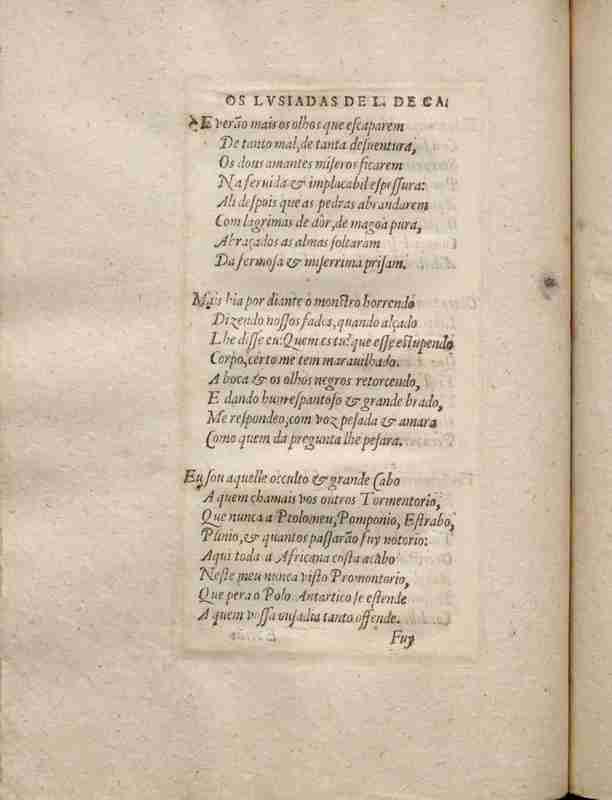 OS LVSIADAS DE L. DE CA.
E verão mais os olhos que eſcaparem
De tanto mal, de tanta deſuentura,
Os dous amantes miſeros ficarem
Na feruida & implacabil eſpeſſura:
Ali deſpois que as pedras abrandarem
Com lagrimas de dôr, de magoa pura,
Abraçados as almas ſoltaram
Da fermoſa & miſerrima priſam.
Mais hia por diante o monſtro horrendo
Dizendo noſſos fados, quando alçado
Lhe diſſe eu: Quem es tu? que eſſe eſtupendo
Corpo, certo me tem marauilhado.
A boca & os olhos negros retorcendo,
E dando hum eſpantoſo & grande brado,
Me reſpondeo, com voz peſada & amara
Como quem da pregunta lhe peſara.
Eu ſou aquelle occulto & grande Cabo
A quem chamais vos outros Tormentorio,
Que nunca a Ptolomeu, Pomponio, Eſtrabo,
Plinio, & quantos paſſarão fuy notorio:
Aqui toda a Africana coſta acabo
Neſte meu nunca viſto Promontorio,
Que pera o Polo Antartico ſe eſtende
A quem voſſa ouſadia tanto offende.
Fuy